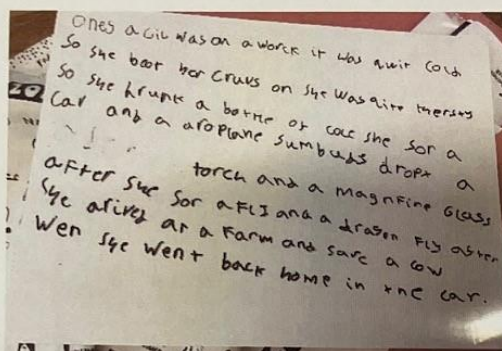 Ones a Gil was on a worck it was quit cold
So she boot her Cruvs on She was qite thersty
So she hrunk a bottle of coce she sor a
Car and a aroplane sumbudy dropt a
torch and a magnfine Glass
after she sor a FlI and a dragon Fly after
She arived at a Farm and save a cow
Wen she went back home in the car.